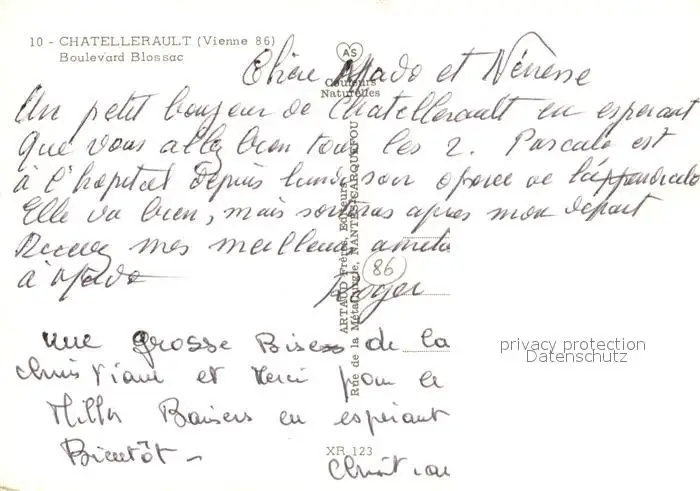 10 - CHATELLERAULT (Vienne 86)
Boulevard Blossac
AS
Couleurs
Naturelles
Chère Mado et Nénesse
Un petit bonjour de Chatellerault en espérant
que vous allez bien tous les 2. Pascale est
à l'hopital depuis lundi soir opérée de l'appendicite
Elle va bien, mais sortira après mon départ
Recevez mes meilleures amitiés
à Mado
Roger
86
ARTAUD Frères, Editeurs
Rue de la Métallurgie, NANTES-CARQUEFOU
une grosse Bises de la
Christiane et Merci pour le
Mille Baisers en espérant
Bientôt -
Christiane
XR 123
privacy protection
Datenschutz